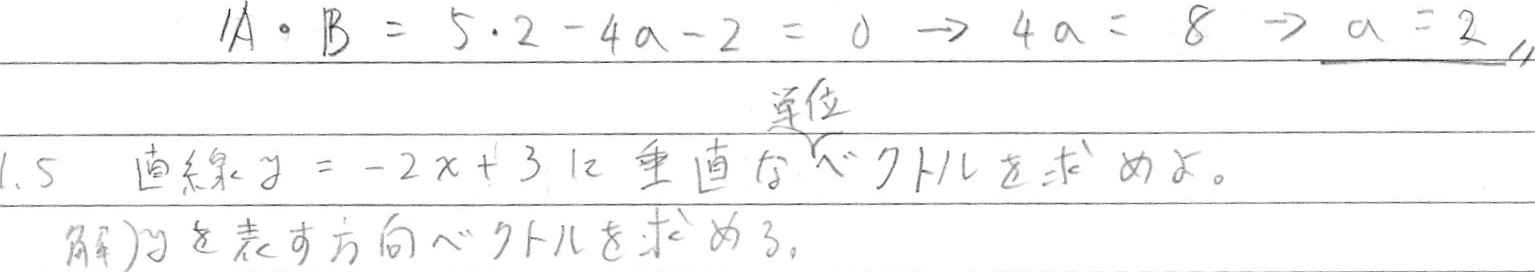 𝔸・𝔹 = 5・2 - 4a - 2 = 0 → 4a = 8 → a = 2 〃
単位
1.5 直線 y = -2x + 3 に垂直なベクトルを求めよ。
解) yを表す方向ベクトルを求める。